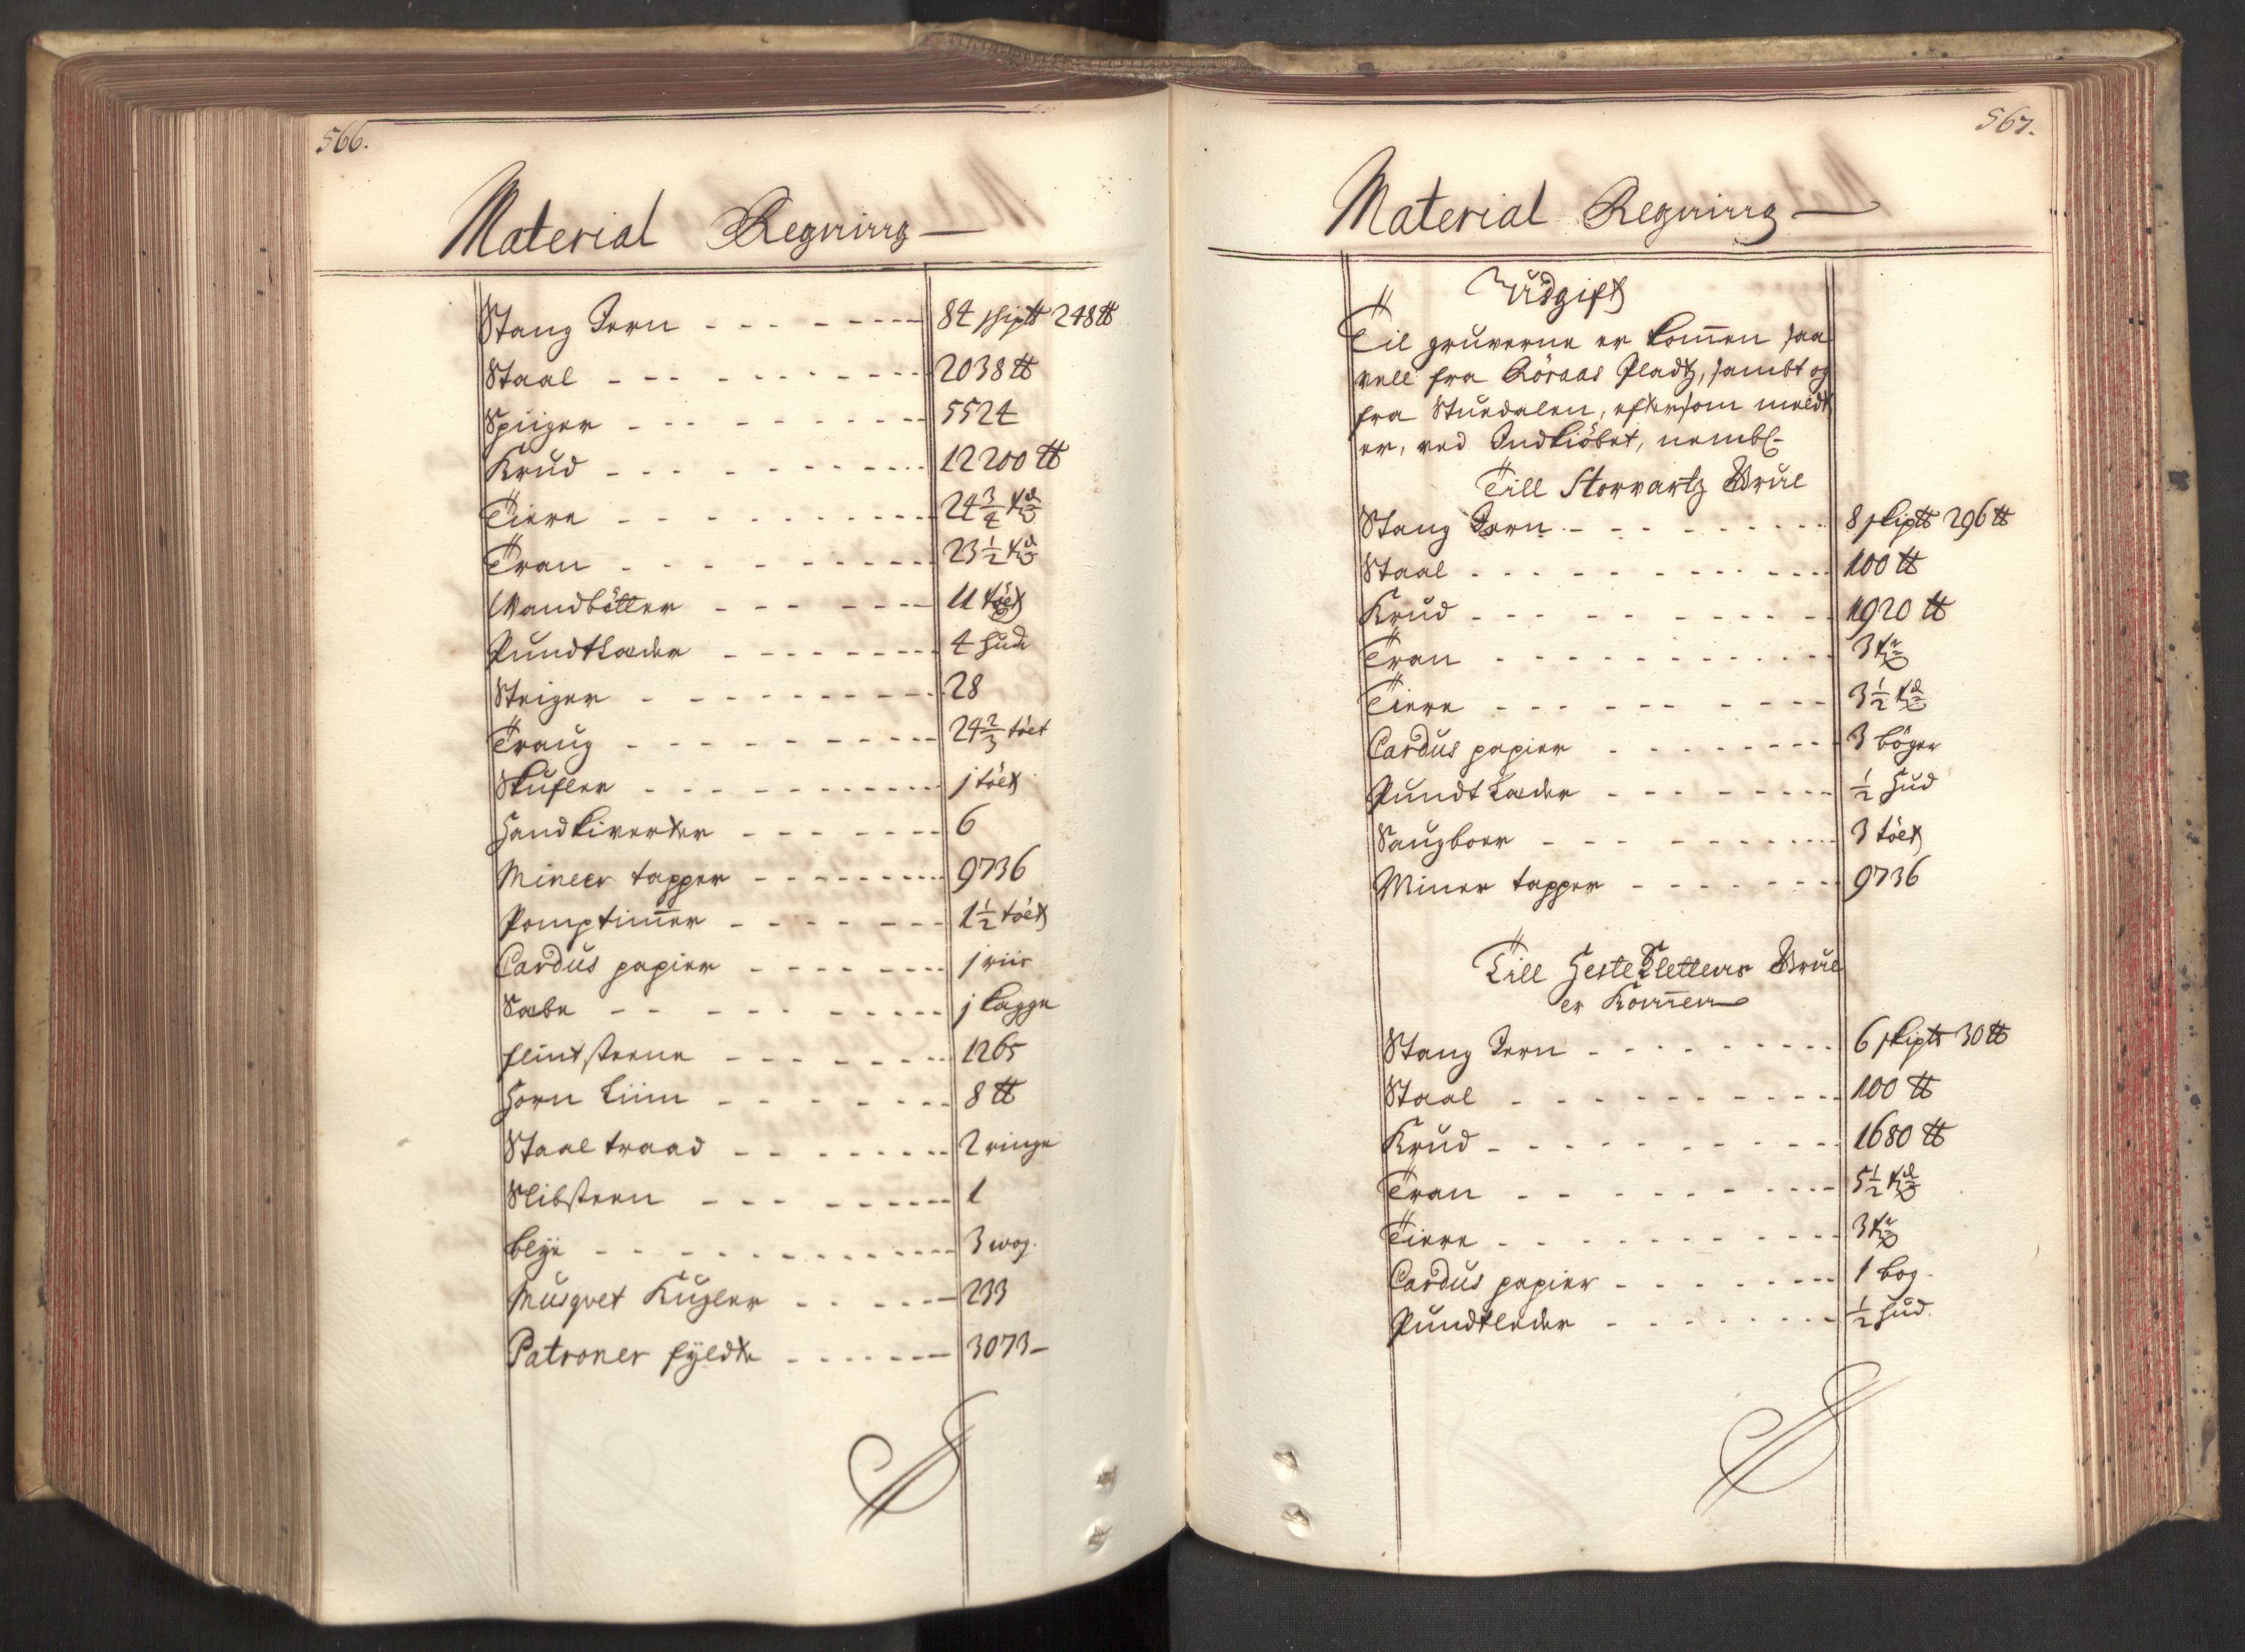 566.
Material Regning
Stang Jern 84 skiptt 248 tt
Staal 2038 tt
Spiiger 5524
Krud 12200 tt
Tiere 24 3/4
Tran 23 1/2
Vandbøtter 11 tölt
Pundtlæder 4 hude
Steiger 28
Traug 24 2/3 tölt
Skufler j tölt
Handkiverter 6
Mineer tapper 9736
Pomptimer 1 1/2 tölt
Cardus papier j riis
Sæbe j lagge
flintsteene 1265
Horn Liim 8 tt
Staal traad 2 ringe
Slibsteen 1
blÿe 3 wog.
Musqvet Kugler 233
Patroner fyldte 3073
567.
Material Regning
Udgift
Til gruverne er komen saa
vell fra Röraas Pladtz, sambt og
fra Stuedalen, eftersom meldt
er, ved Indkiöbet, nembl.
Till Storvartz Brue
Stang Jern 8 skiptt 296 tt
Staal 100 tt
Krud 1920 tt
Tran 3
Tiere 3 1/2
Cardus papier 3 böger
Pundt Læder 1/2 Hud
Saugboer 3 tölt
Miner tapper 9736
Till Hestekletten Brue
er Komen
Stang Jern 6 skiptt 30 tt
Staal 100 tt
Krud 1680 tt
Tran 5 1/2
Tiere 3
Cardus papier 1 bog
Pundtleder 1/2 hud.